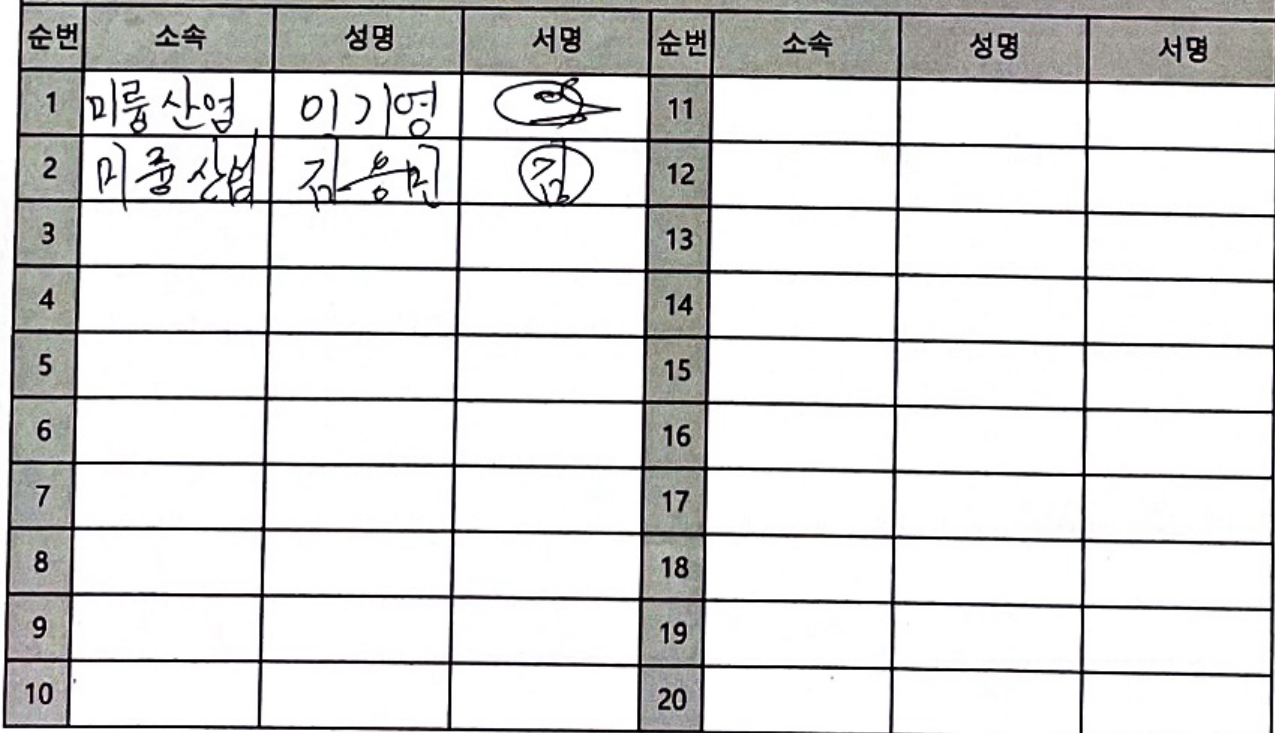 순번 소속 성명 서명 순번 소속 성명 서명
1 미륭산업 이기영 11
2 미륭산업 김용민 김 12
3 13
4 14
5 15
6 16
7 17
8 18
9 19
10 20